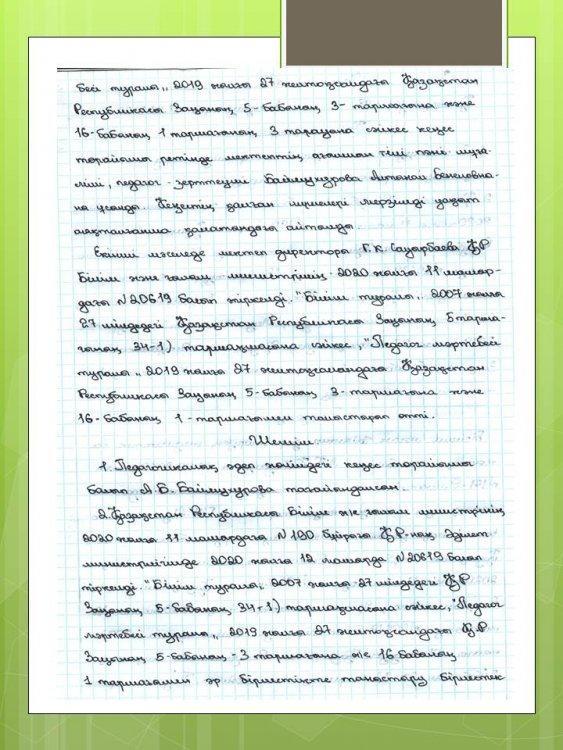 бесі туралы,, 2019 жылғы 27 желтоқсандағы Қазақстан
Республикасы Заңының 5-бабының, 3-тармағына және
16-бабының 1 тармағының, 3 тарауына сәйкес кеңес
торайымы ретінде мектептің ағылшын тілі пәні мұға-
лімі, педагог-зерттеуші Баймұқұрова Бенсовна-
ны ұсынды. Кеңестің қалған мүшелері мерзімді уақыт
аяқталғанша қалатындығы айтылды.
Екінші мәселеде мектеп директоры Г.К. Сауырбаева ҚР
Білім және ғылым министрінің 2020 жылғы 11 мамыр-
дағы N20619 болып тіркелді. "Білім туралы,, 2007 жылғы
27 шілдедегі Қазақстан Республикасы Заңының, 5 тарма-
ғының, 34-1) тармақшасына сәйкес, "Педагог мәртебесі
туралы,, 2019 жылғы 27 желтоқсандағы Қазақстан
Республикасы Заңының, 5-бабының, 3-тармағына және
16-бабының, 1-тармағымен таныстырып өтті.
Шешім
1. Педагогикалық әдеп жөніндегі кеңес торайымы
болып А.Б. Баймұқұрова тағайындалсын.
2. Қазақстан Республикасы Білім ж/е ғылым министрінің
2020 жылғы 11 мамырдағы N 190 бұйрығы ҚР-ның Әділет
министрлігінде 2020 жылғы 12 мамырда N20619 болып
тіркелді. "Білім туралы,, 2007 жылғы 27 шілдедегі ҚР
Заңының, 5-бабының, 34-1) тармақшасына сәйкес, "Педагог
мәртебесі туралы,, 2019 жылғы 27 желтоқсандағы ҚР
Заңының, 5-бабының -3 тармағына ж/е 16 бабының,
1 тармағымен әр бірлестікте таныстыру бірлестік